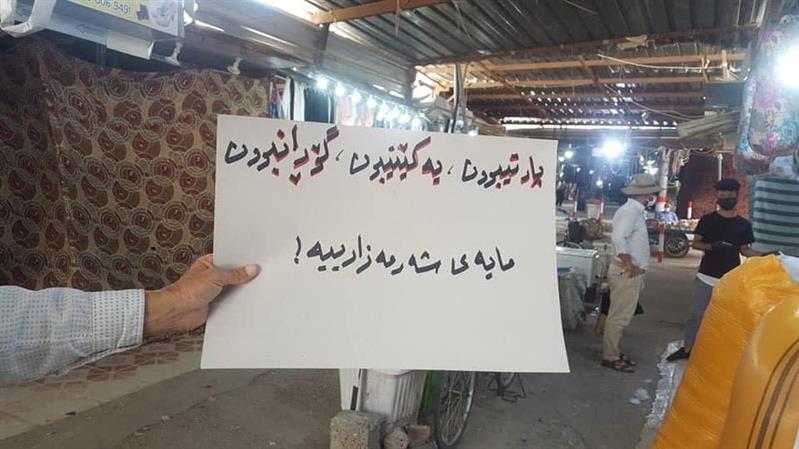 606 9491
پارتیبوون، یەکێتیبوون، گۆڕانبوون
مایەی شەرمەزارییە!